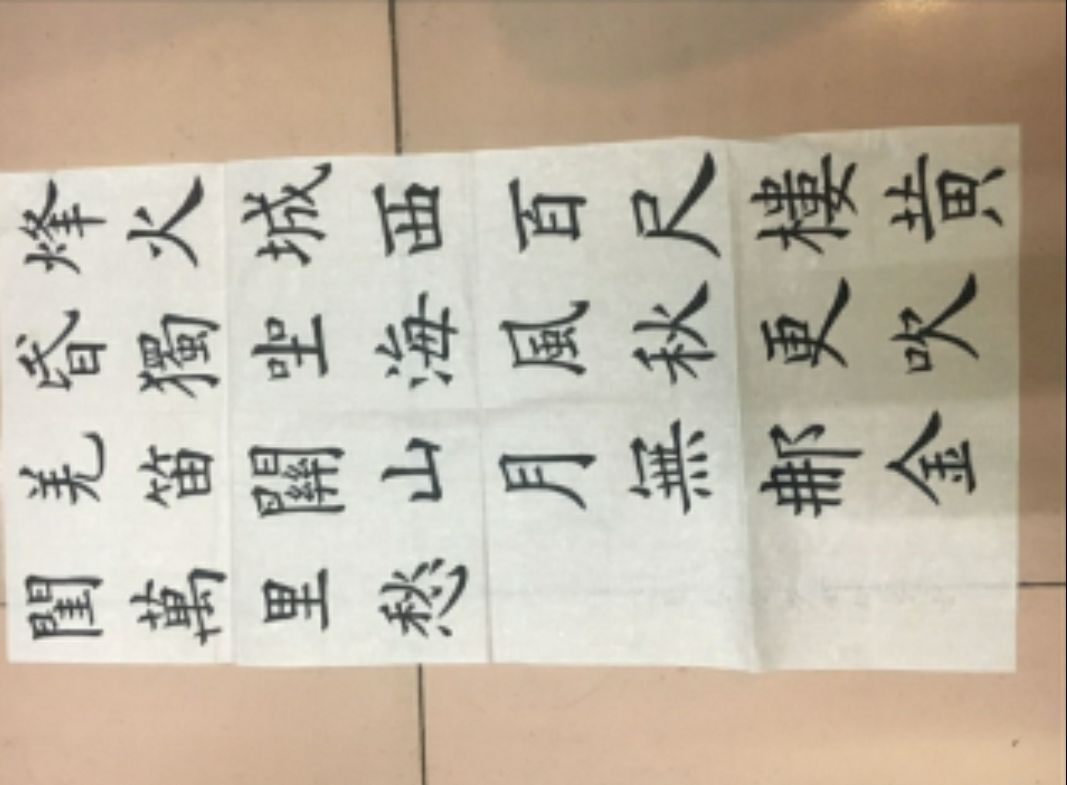 烽火城西百尺樓黃
昏獨坐海風秋更吹
羌笛關山月無那金
閨萬里愁